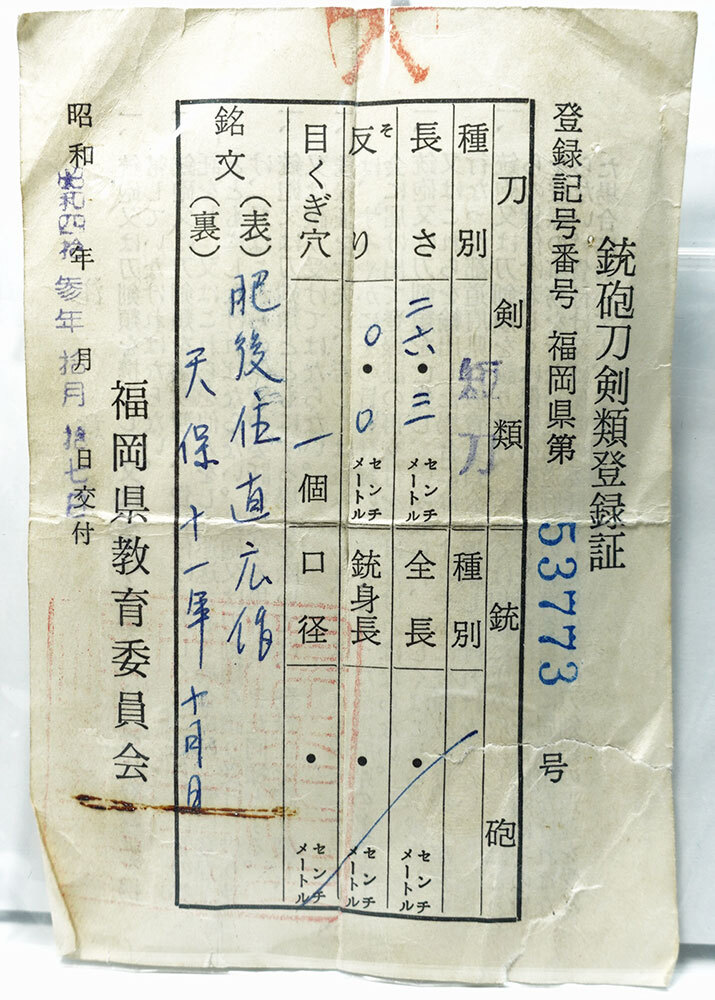 銃砲刀剣類登録証
登録記号番号 福岡県第 53773 号
刀剣類
種別 短刀
長さ 二六・三 センチメートル
反り そ 〇・〇 センチメートル
目くぎ穴 一個
銃砲
種別
全長 ・ センチメートル
銃身長 ・ センチメートル
口径 ・ センチメートル
銘文 (表) 肥後住直広作
(裏) 天保十一年十月日
昭和 年 月 日交付
昭和四拾参年 拾月 拾七日
福岡県教育委員会